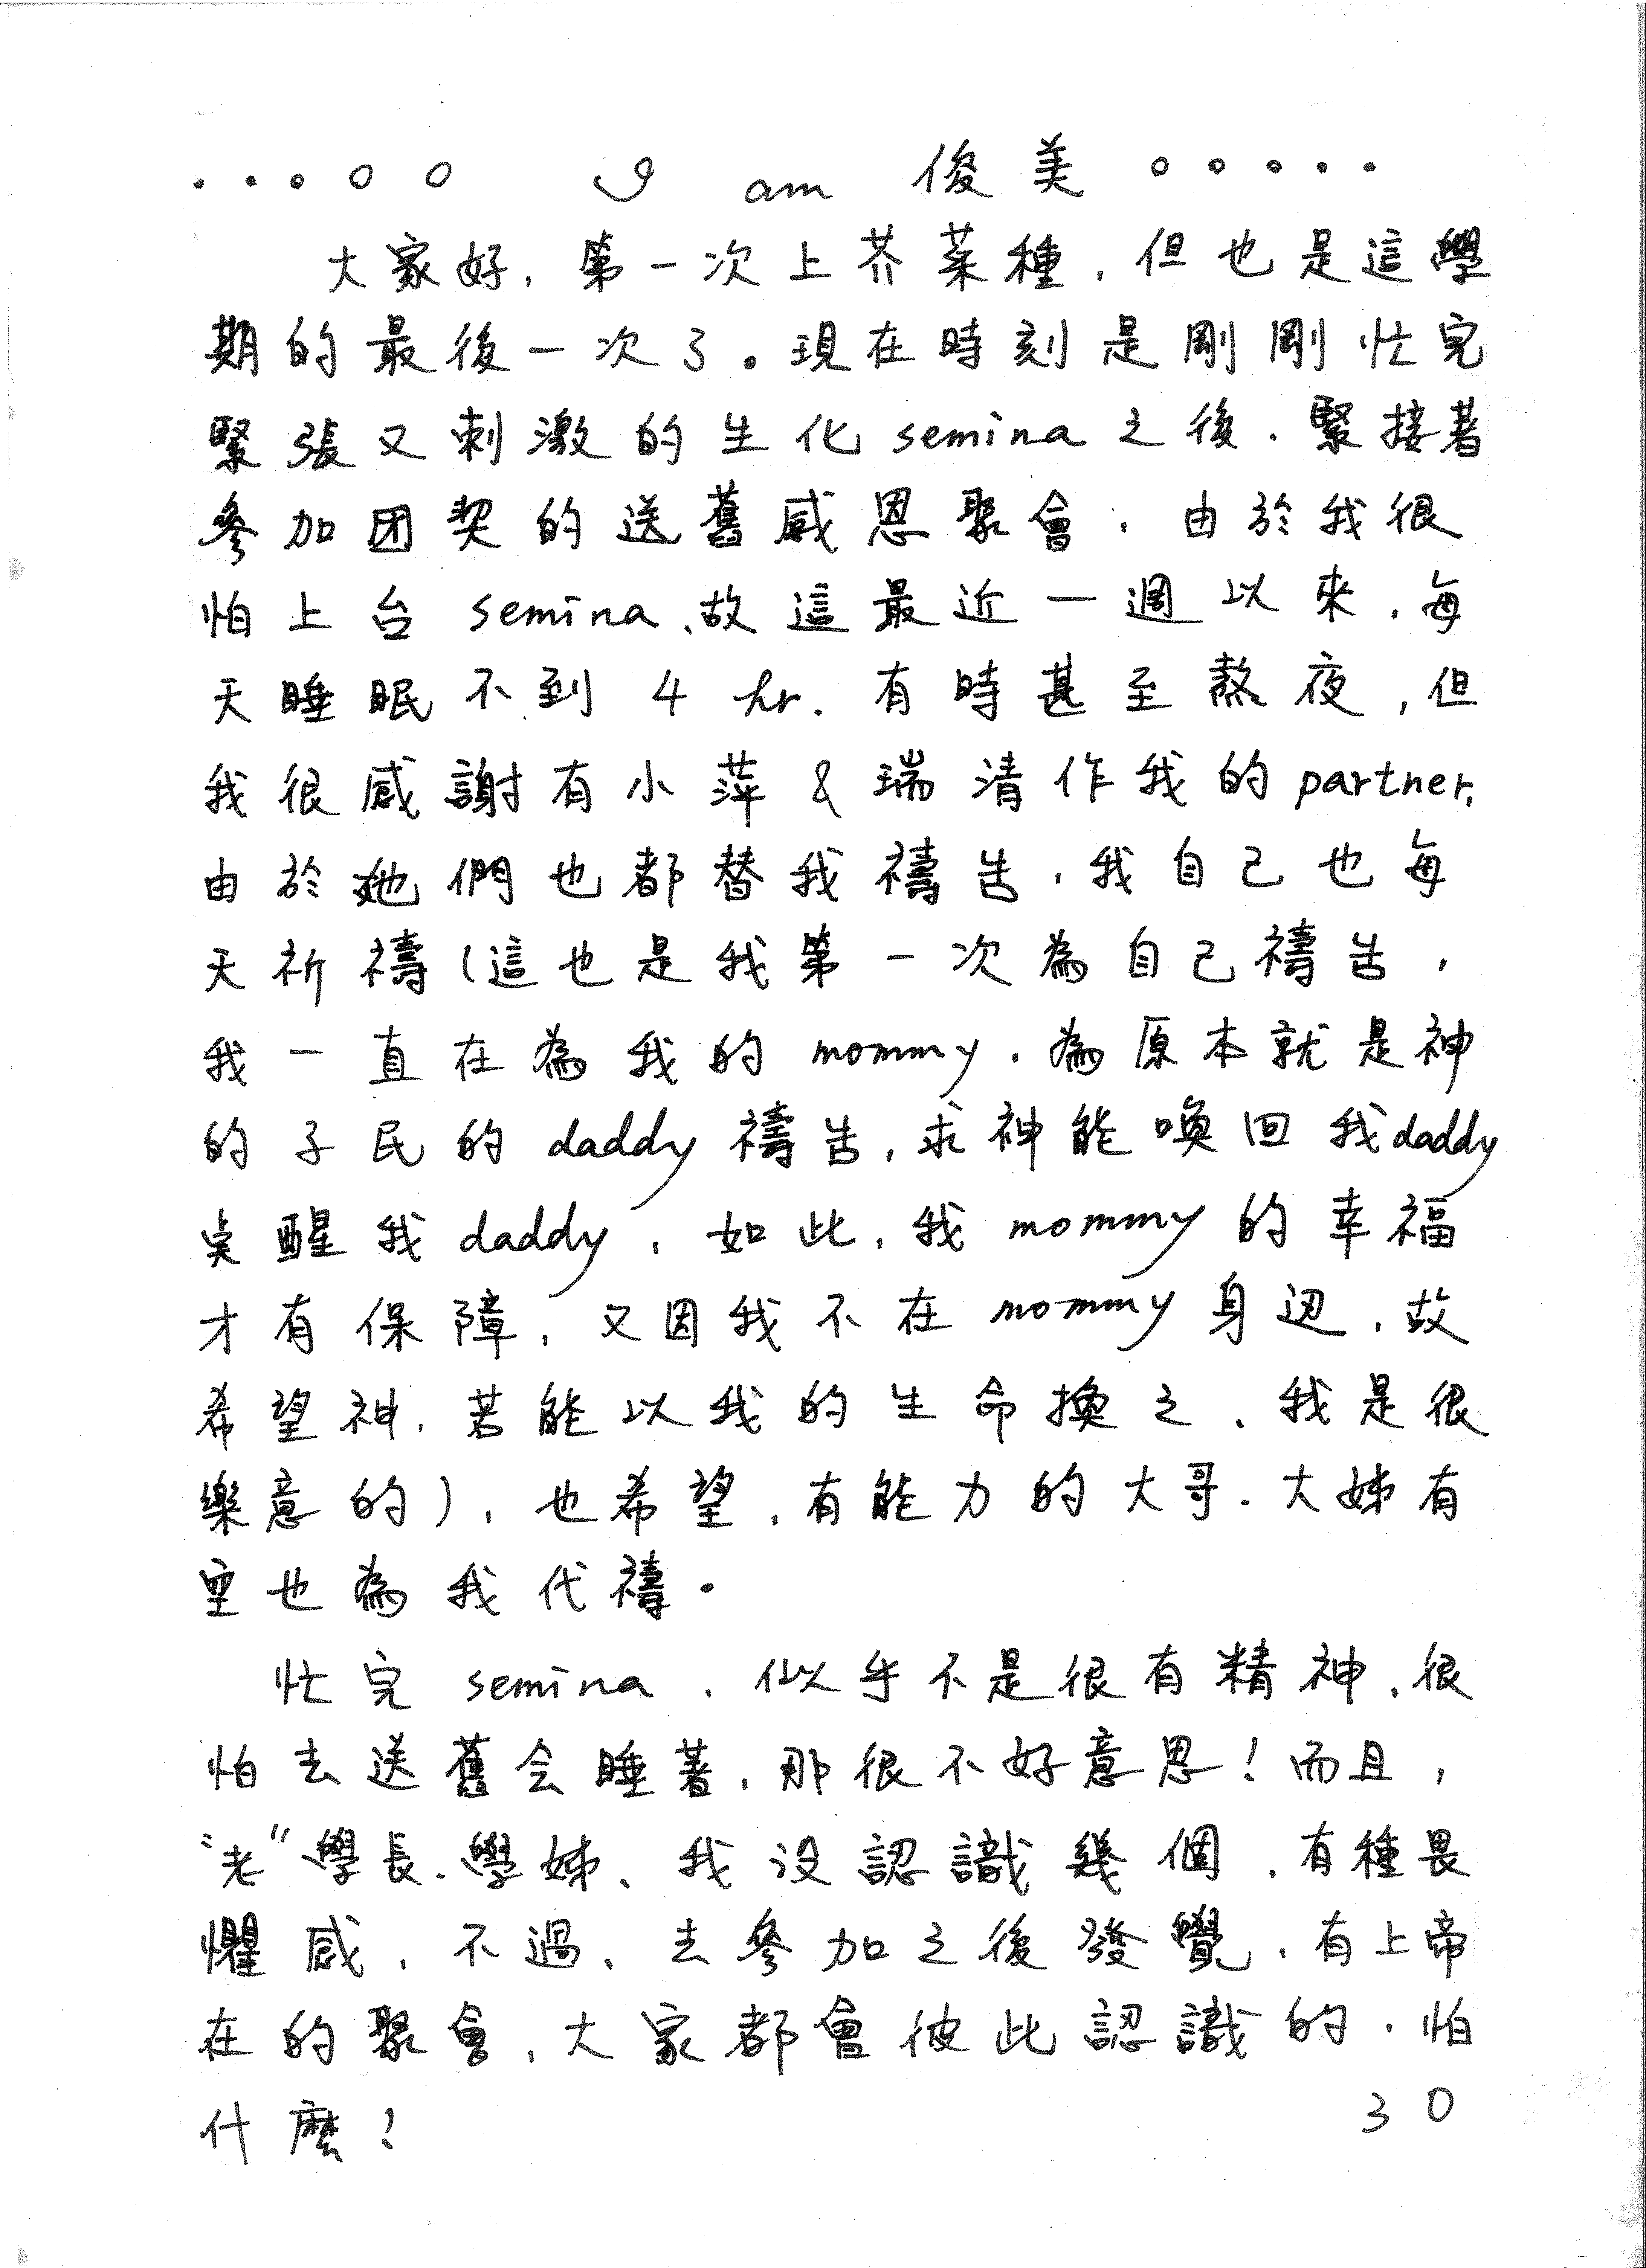 ....oo I am 俊美 ooo..
大家好，第一次上芥菜種，但也是這學
期的最後一次了。現在時刻是剛剛忙完
緊張又刺激的生化semina之後，緊接著
參加团契的送舊感恩聚會，由於我很
怕上台semina、故這最近一週以來，每
天睡眠不到4 hr. 有時甚至熬夜，但
我很感謝有小萍&瑞清作我的partner,
由於她們也都替我禱告，我自己也每
天祈禱(這也是我第一次為自己禱告，
我一直在為我的mommy，為原本就是神
的子民的daddy禱告，求神能喚回我daddy
奂醒我daddy，如此，我mommy的幸福
才有保障，又因我不在mommy身边，故
希望神，若能以我的生命換之、我是很
樂意的)，也希望，有能力的大哥．大姊有
空也為我代禱．
忙完semina，似乎不是很有精神、很
怕去送舊会睡著，那很不好意思！而且，
"老"學長．學姊、我没認識幾個，有種畏
懼感，不過、去參加之後發覺，有上帝
在的聚會，大家都會彼此認識的，怕
什麼！
30